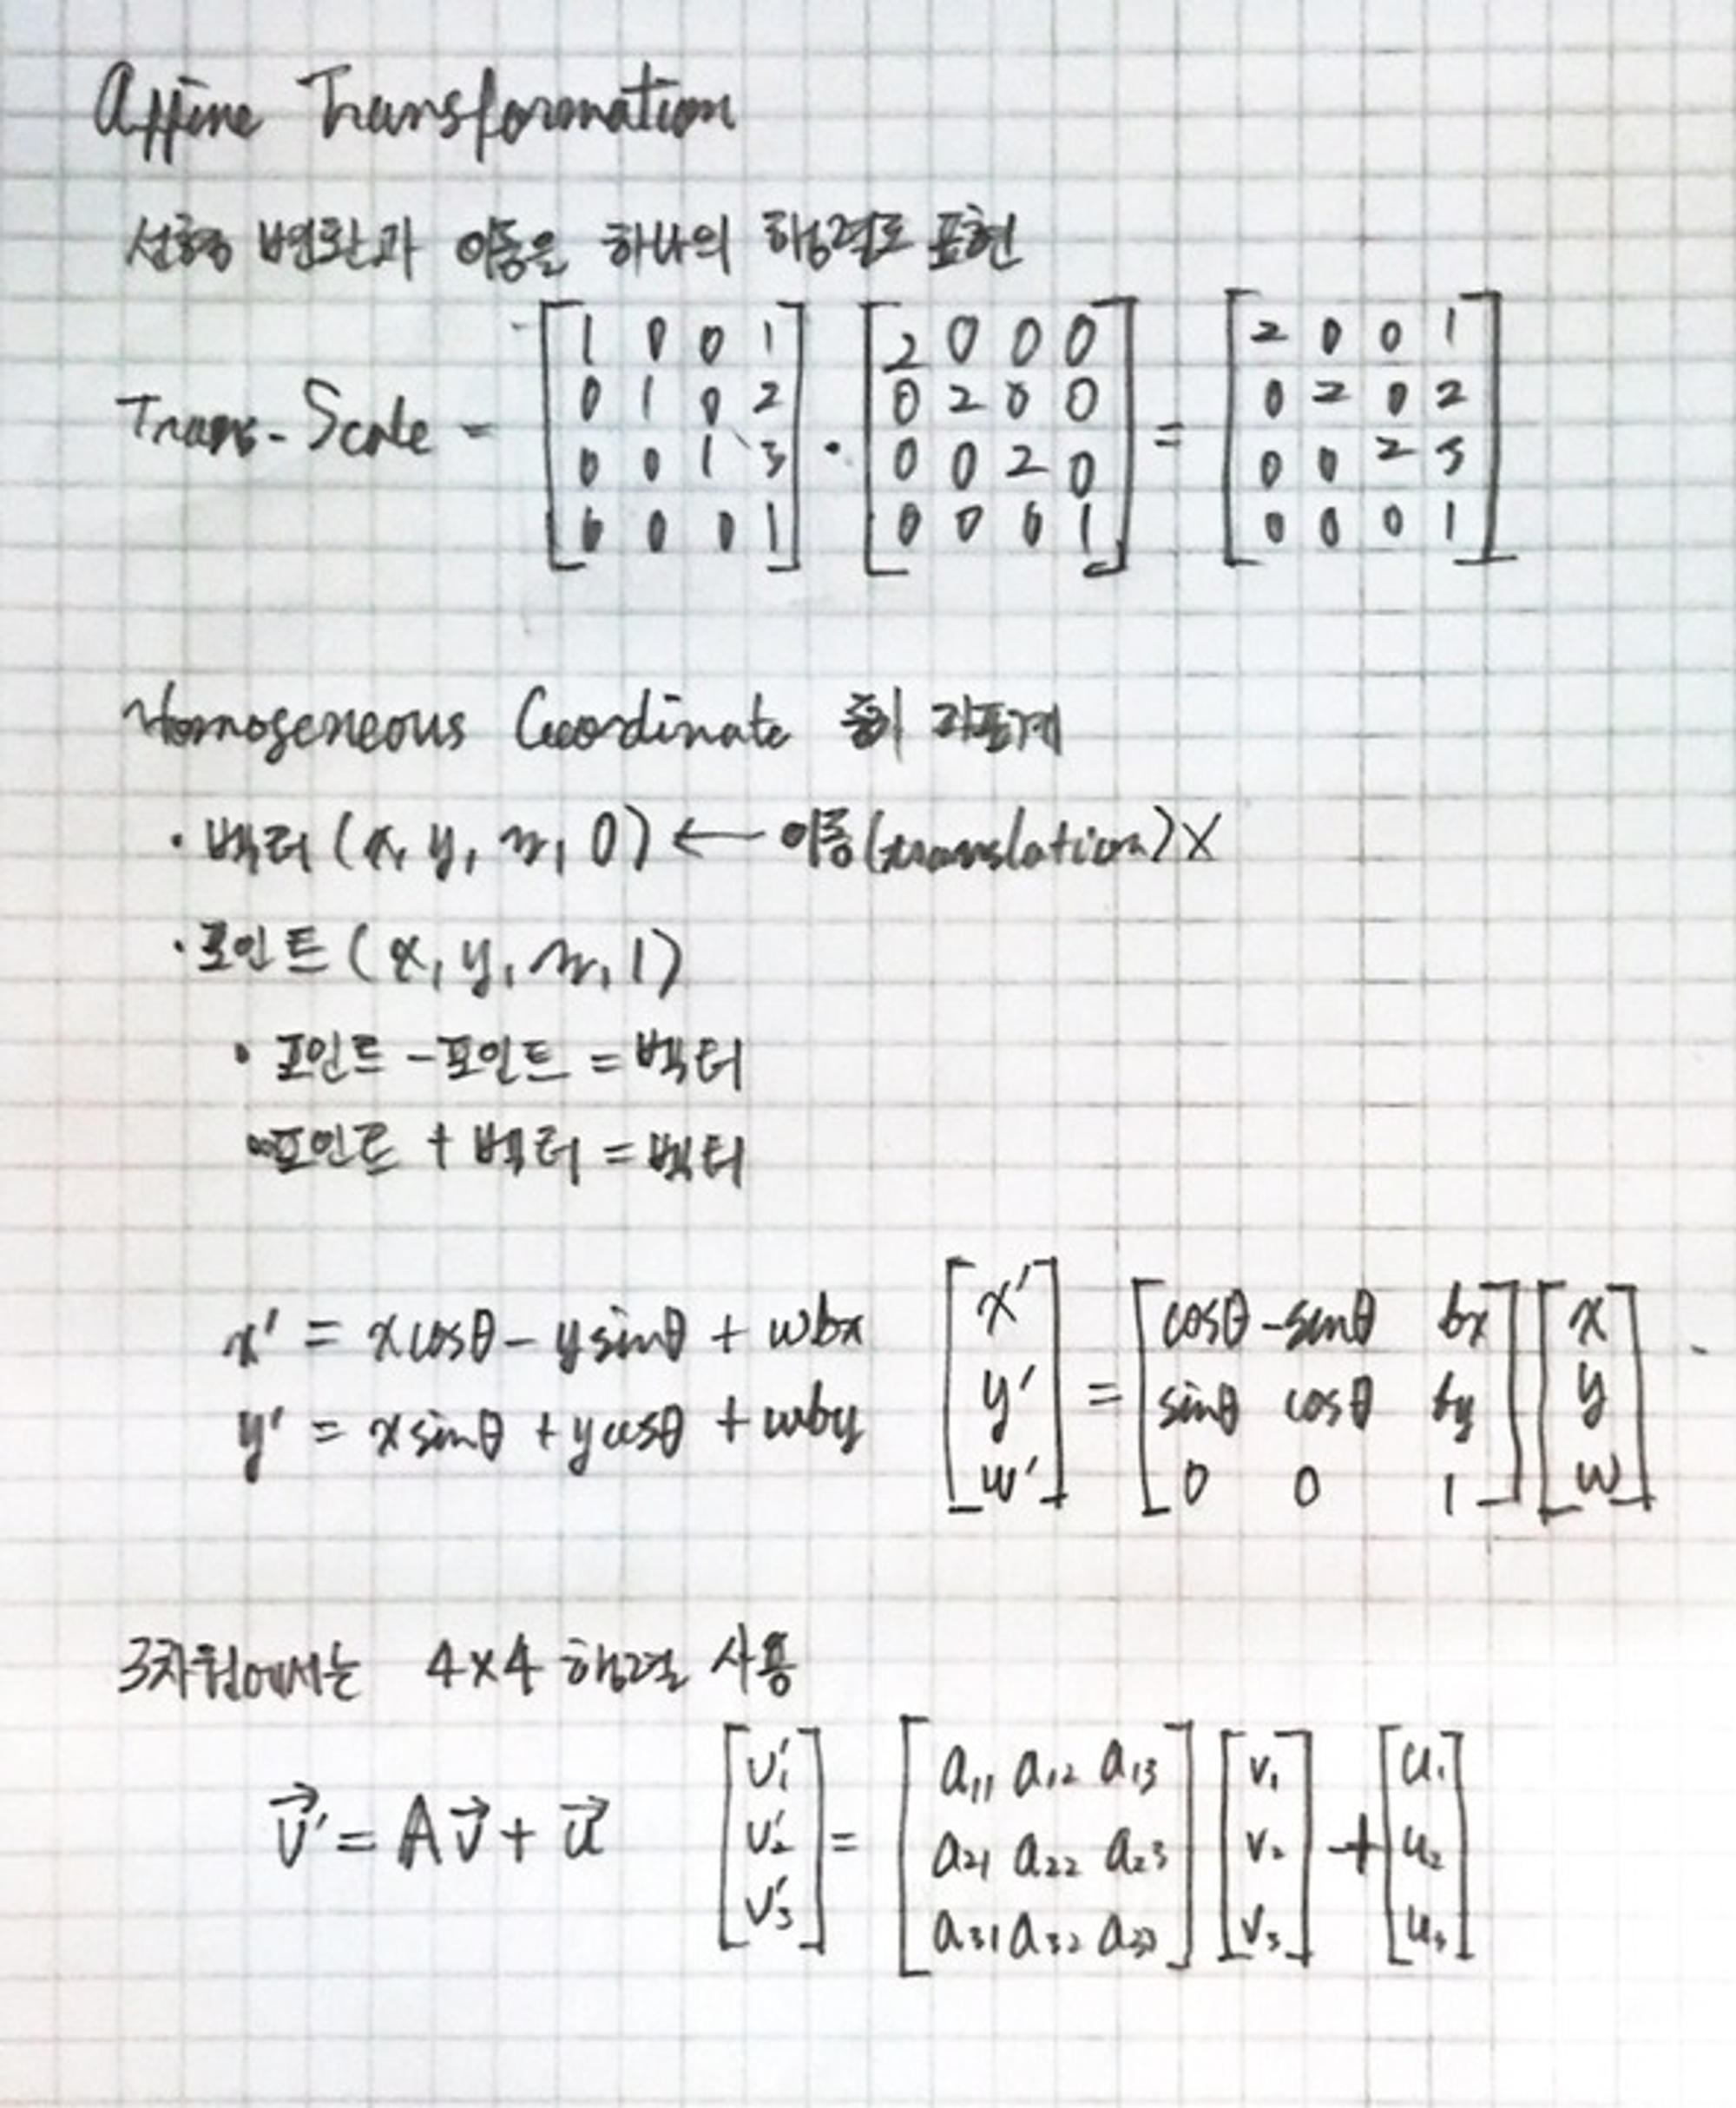 Affine Transformation
선형 변환과 이동을 하나의 행렬로 표현
Trans-Scale = [1 0 0 1; 0 1 0 2; 0 0 1 3; 0 0 0 1] · [2 0 0 0; 0 2 0 0; 0 0 2 0; 0 0 0 1] = [2 0 0 1; 0 2 0 2; 0 0 2 3; 0 0 0 1]
Homogeneous Coordinate 동차 좌표계
· 벡터 (x, y, z, 0) ← 이동(translation) X
· 포인트 (x, y, z, 1)
· 포인트 - 포인트 = 벡터
· 포인트 + 벡터 = 벡터
x' = xcosθ - ysinθ + wbx
y' = xsinθ + ycosθ + wby
[x'; y'; w'] = [cosθ -sinθ bx; sinθ cosθ by; 0 0 1] [x; y; w]
3차원에서는 4x4 행렬 사용
v⃗' = Av⃗ + u⃗
[v₁'; v₂'; v₃'] = [a₁₁ a₁₂ a₁₃; a₂₁ a₂₂ a₂₃; a₃₁ a₃₂ a₃₃] [v₁; v₂; v₃] + [u₁; u₂; u₃]